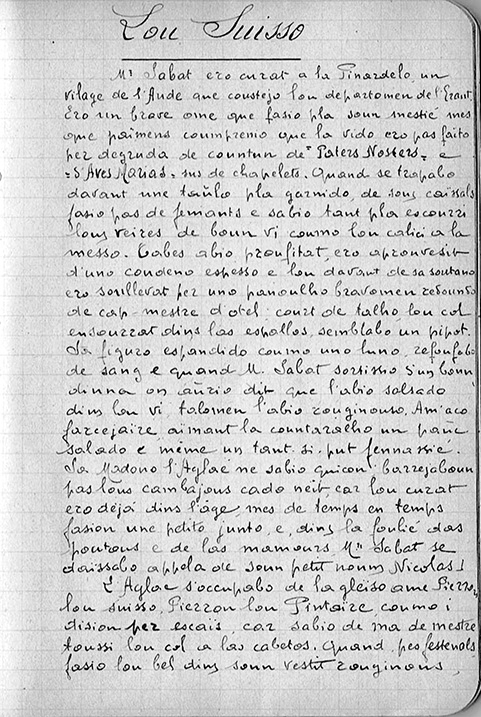 Lou Suisso
Mr Sabat ero curat a la Pinardelo, un
vilage de l'Aude que coustejo lou departomen de l'Erant
Ero un brave ome que fasio pla soun mestié mes
que païmens coumprenio que la vido ero pas faito
per degruda de countun de "Paters Nosters" e
"d'Aves Marias" sus de chapelets. Quand se trapabo
davant une taulo pla garnido, de sous caissals
fasio pas de femants e sabio tant pla escourri
lous veires de boun vi coumo lou calici a la
messo. Tabes abio proufitat, ero aprouvesit
d'uno condeno espesso e lou davant de sa soutano
ero soullevat per uno panoulho bravomen redoundo
de cap-mestre d'otel: court de talho lou col
ensourrat dins las espallos, semblabo un pipot.
Sa figuro espandido coumo uno luno, refoufabo
de sang e quand M. Sabat sorsissio d'un boun
dinna on aurio dit que l'abio salsado
dins lou vi, talomen l'abio rouginouso, Am'aco
farcejaire, aimant la countaralho un pauc
salado e même un tant-si-put fennassié.
La Madono l'Aglaé ne sabio quicon: barrejaboun
pas lous cambajous cado neit, car lou curat
ero déjà dins l'âge, mes de temps en temps
fasion une petito junto, e, dins la foulié das
poutous e de las mamours, Mr Sabat se
daissabo appela de soun petit noum Nicolas!
L'Aglae s'occupabo de la gleiso ame Pierrou
lou suisso, Pierrou lou Pintaire, coumo i
disiou per escais car sabio de ma de mestre
toussi lou col a las cabetos. Quand, pes festenals
fasio lou bel dins soun vestit rouginous,